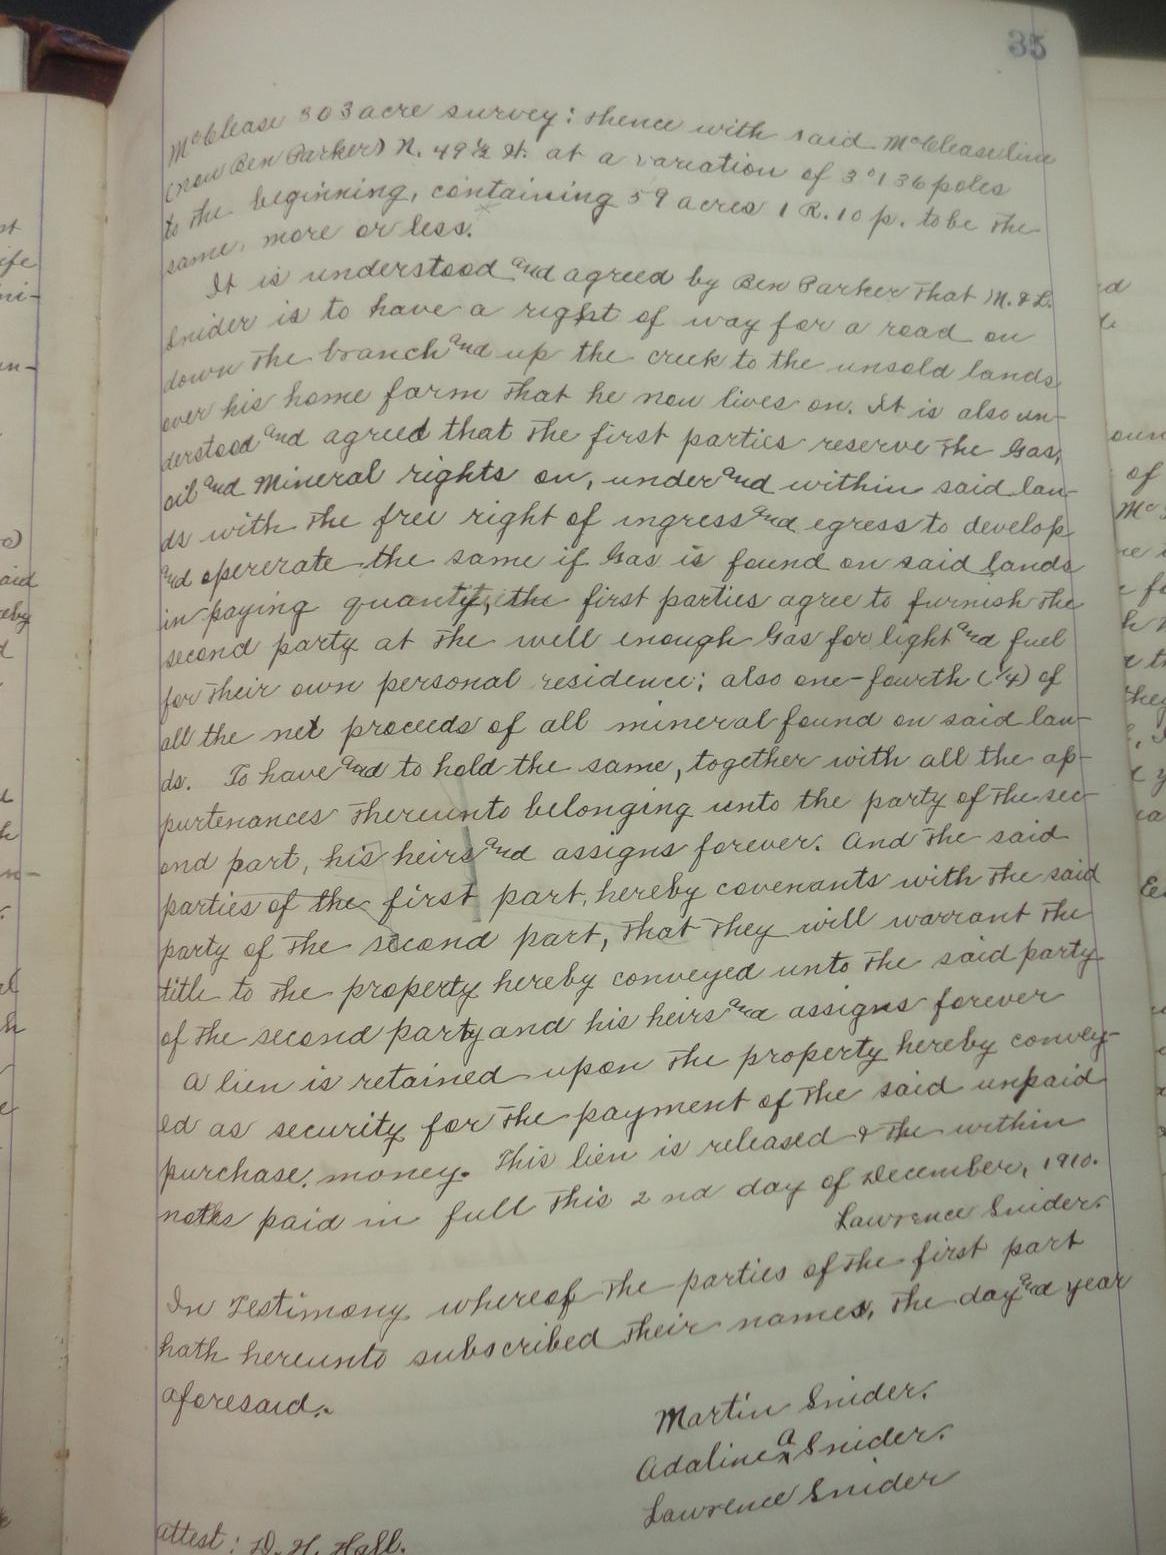 35
McClease 303 acre survey: thence with said McClease line
(now Ben Parker) N. 49½ W. at a variation of 3° 136 poles
to the beginning, containing 59 acres 1 R. 10 p. to be the
same, more or less.
It is understood and agreed by Ben Parker that M. & L.
Snider is to have a right of way for a road on
down the branch and up the creek to the unsold lands
over his home farm that he now lives on. It is also un-
derstood and agreed that the first parties reserve the Gas,
oil and Mineral rights on, under and within said lan-
ds with the free right of ingress and egress to develop
and opererate the same if Gas is found on said lands
in paying quantity, the first parties agree to furnish the
second party at the well enough Gas for light and fuel
for their own personal residence; also one-fourth (1/4) of
all the net proceeds of all mineral found on said lan-
ds. To have and to hold the same, together with all the ap-
purtenances thereunto belonging unto the party of the sec-
ond part, his heirs and assigns forever. And the said
parties of the first part, hereby covenants with the said
party of the second part, that they will warrant the
title to the property hereby conveyed unto the said party
of the second party and his heirs and assigns forever
A lien is retained upon the property hereby convey-
ed as security for the payment of the said unpaid
purchase money. This lien is released & the within
notes paid in full this 2nd day of December, 1910.
Lawrence Snider.
In Testimony whereof the parties of the first part
hath hereunto subscribed their names, the day and year
aforesaid.
Martin Snider.
Adaline a Snider.
Lawrence Snider
attest: D. H. Hall.